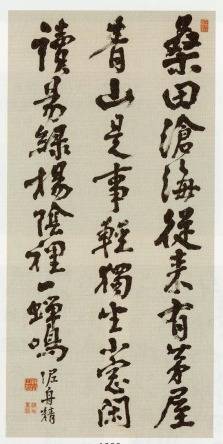 桑田滄海從来有茅屋
青山是事輕獨坐小窓閑
讀易綠楊陰裡一蟬鳴
泥舟精